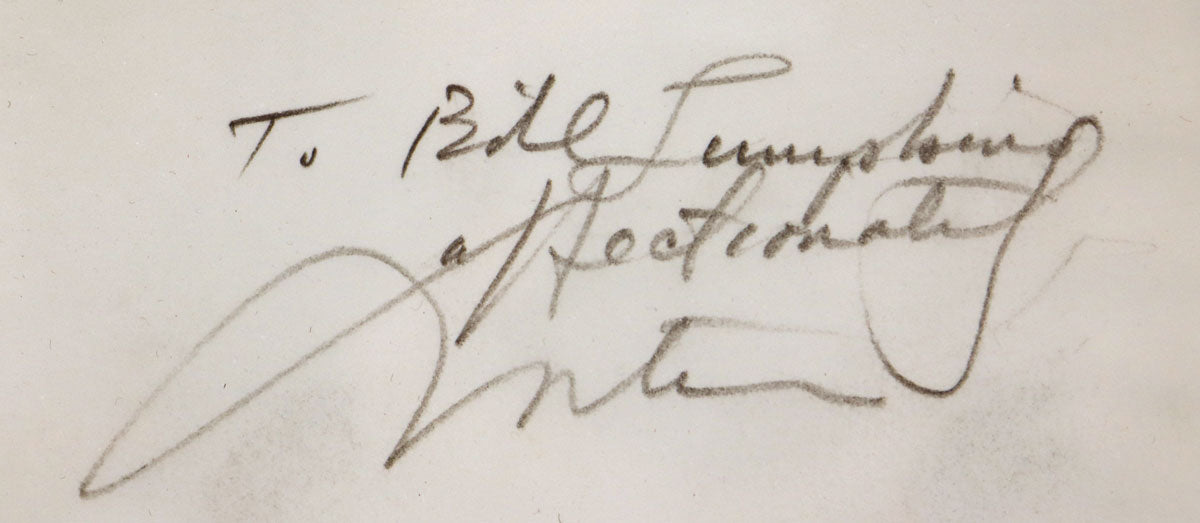 To Bill Lumpkins
affectionately